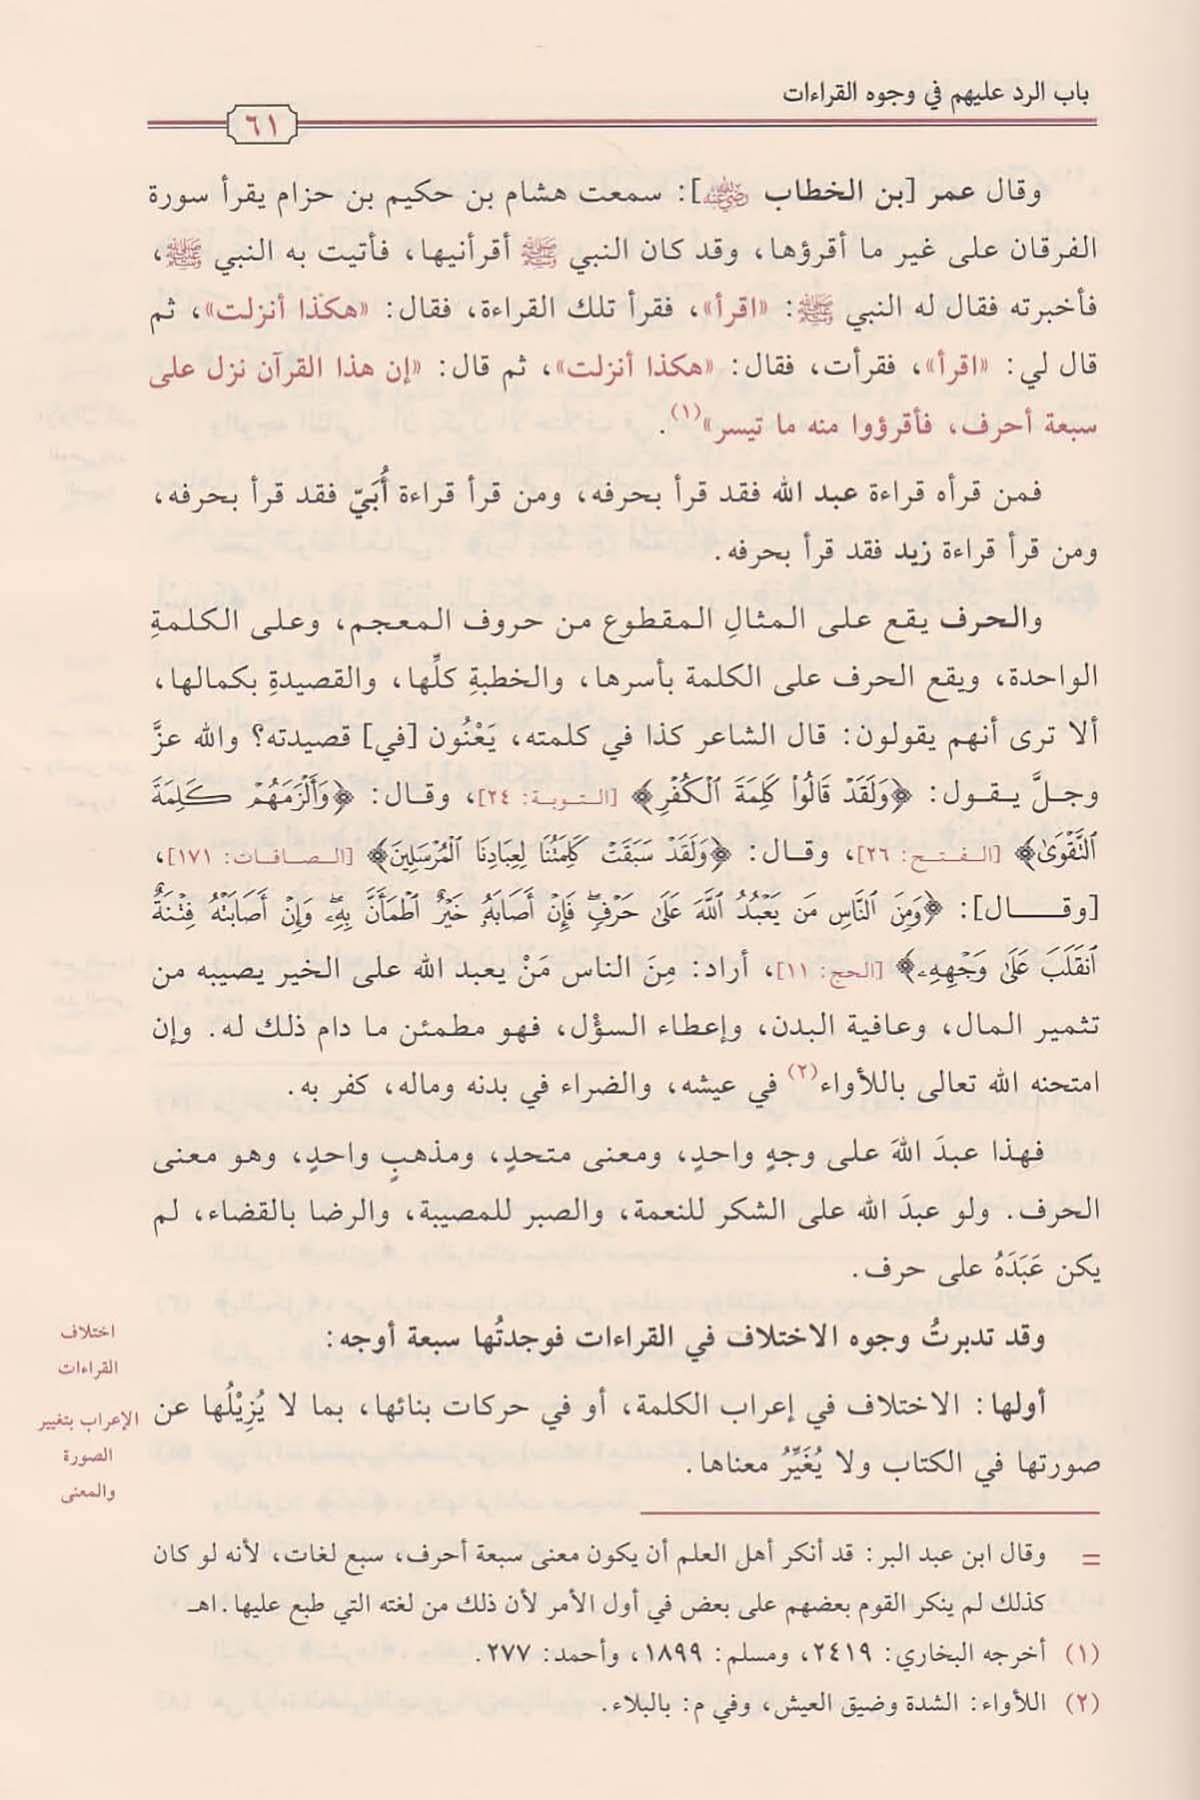 باب الرد عليهم في وجوه القراءات
٦١
وقال عمر [بن الخطاب رضي الله عنه]: سمعت هشام بن حكيم بن حزام يقرأ سورة
الفرقان على غير ما أقرؤها، وقد كان النبي ﷺ أقرأنيها، فأتيت به النبي ﷺ،
فأخبرته فقال له النبي ﷺ: «اقرأ»، فقرأ تلك القراءة، فقال: «هكذا أنزلت»، ثم
قال لي: «اقرأ»، فقرأت، فقال: «هكذا أنزلت»، ثم قال: «إن هذا القرآن نزل على
سبعة أحرف، فأقرؤوا منه ما تيسر»(١).
فمن قرأه قراءة عبد الله فقد قرأ بحرفه، ومن قرأ قراءة أُبَيّ فقد قرأ بحرفه،
ومن قرأ قراءة زيد فقد قرأ بحرفه.
والحرف يقع على المثالِ المقطوع من حروف المعجم، وعلى الكلمةِ
الواحدة، ويقع الحرف على الكلمة بأسرها، والخطبةِ كلِّها، والقصيدةِ بكمالها،
ألا ترى أنهم يقولون: قال الشاعر كذا في كلمته، يَعْنُون [في] قصيدته؟ والله عزَّ
وجلَّ يقول: ﴿وَلَقَدۡ قَالُواْ كَلِمَةَ ٱلۡكُفۡرِ﴾ [التوبة: ٢٤]، وقال: ﴿وَأَلۡزَمَهُمۡ كَلِمَةَ
ٱلتَّقۡوَىٰ﴾ [الفتح: ٢٦]، وقال: ﴿وَلَقَدۡ سَبَقَتۡ كَلِمَتُنَا لِعِبَادِنَا ٱلۡمُرۡسَلِينَ﴾ [الصافات: ١٧١]،
[وقال]: ﴿وَمِنَ ٱلنَّاسِ مَن يَعۡبُدُ ٱللَّهَ عَلَىٰ حَرۡفٖۖ فَإِنۡ أَصَابَهُۥ خَيۡرٌ ٱطۡمَأَنَّ بِهِۦۖ وَإِنۡ أَصَابَتۡهُ فِتۡنَةٌ
ٱنقَلَبَ عَلَىٰ وَجۡهِهِۦ﴾ [الحج: ١١]، أراد: مِنَ الناس مَنْ يعبد الله على الخير يصيبه من
تثمير المال، وعافية البدن، وإعطاء السؤْل، فهو مطمئن ما دام ذلك له. وإن
امتحنه الله تعالى باللأواء(٢) في عيشه، والضراء في بدنه وماله، كفر به.
فهذا عبدَ اللهَ على وجهٍ واحدٍ، ومعنى متحدٍ، ومذهبٍ واحدٍ، وهو معنى
الحرف. ولو عبدَ الله على الشكر للنعمة، والصبر للمصيبة، والرضا بالقضاء، لم
يكن عَبَدَهُ على حرف.
وقد تدبرتُ وجوه الاختلاف في القراءات فوجدتُها سبعة أوجه:
اختلاف
القراءات
أولها: الاختلاف في إعراب الكلمة، أو في حركات بنائها، بما لا يُزِيْلُها عن
صورتها في الكتاب ولا يُغَيِّرُ معناها.
الإعراب بتغيير
الصورة
والمعنى
= وقال ابن عبد البر: قد أنكر أهل العلم أن يكون معنى سبعة أحرف، سبع لغات، لأنه لو كان
كذلك لم ينكر القوم بعضهم على بعض في أول الأمر لأن ذلك من لغته التي طبع عليها. اهـ
(١) أخرجه البخاري: ٢٤١٩، ومسلم: ١٨٩٩، وأحمد: ٢٧٧.
(٢) اللأواء: الشدة وضيق العيش، وفي م: بالبلاء.